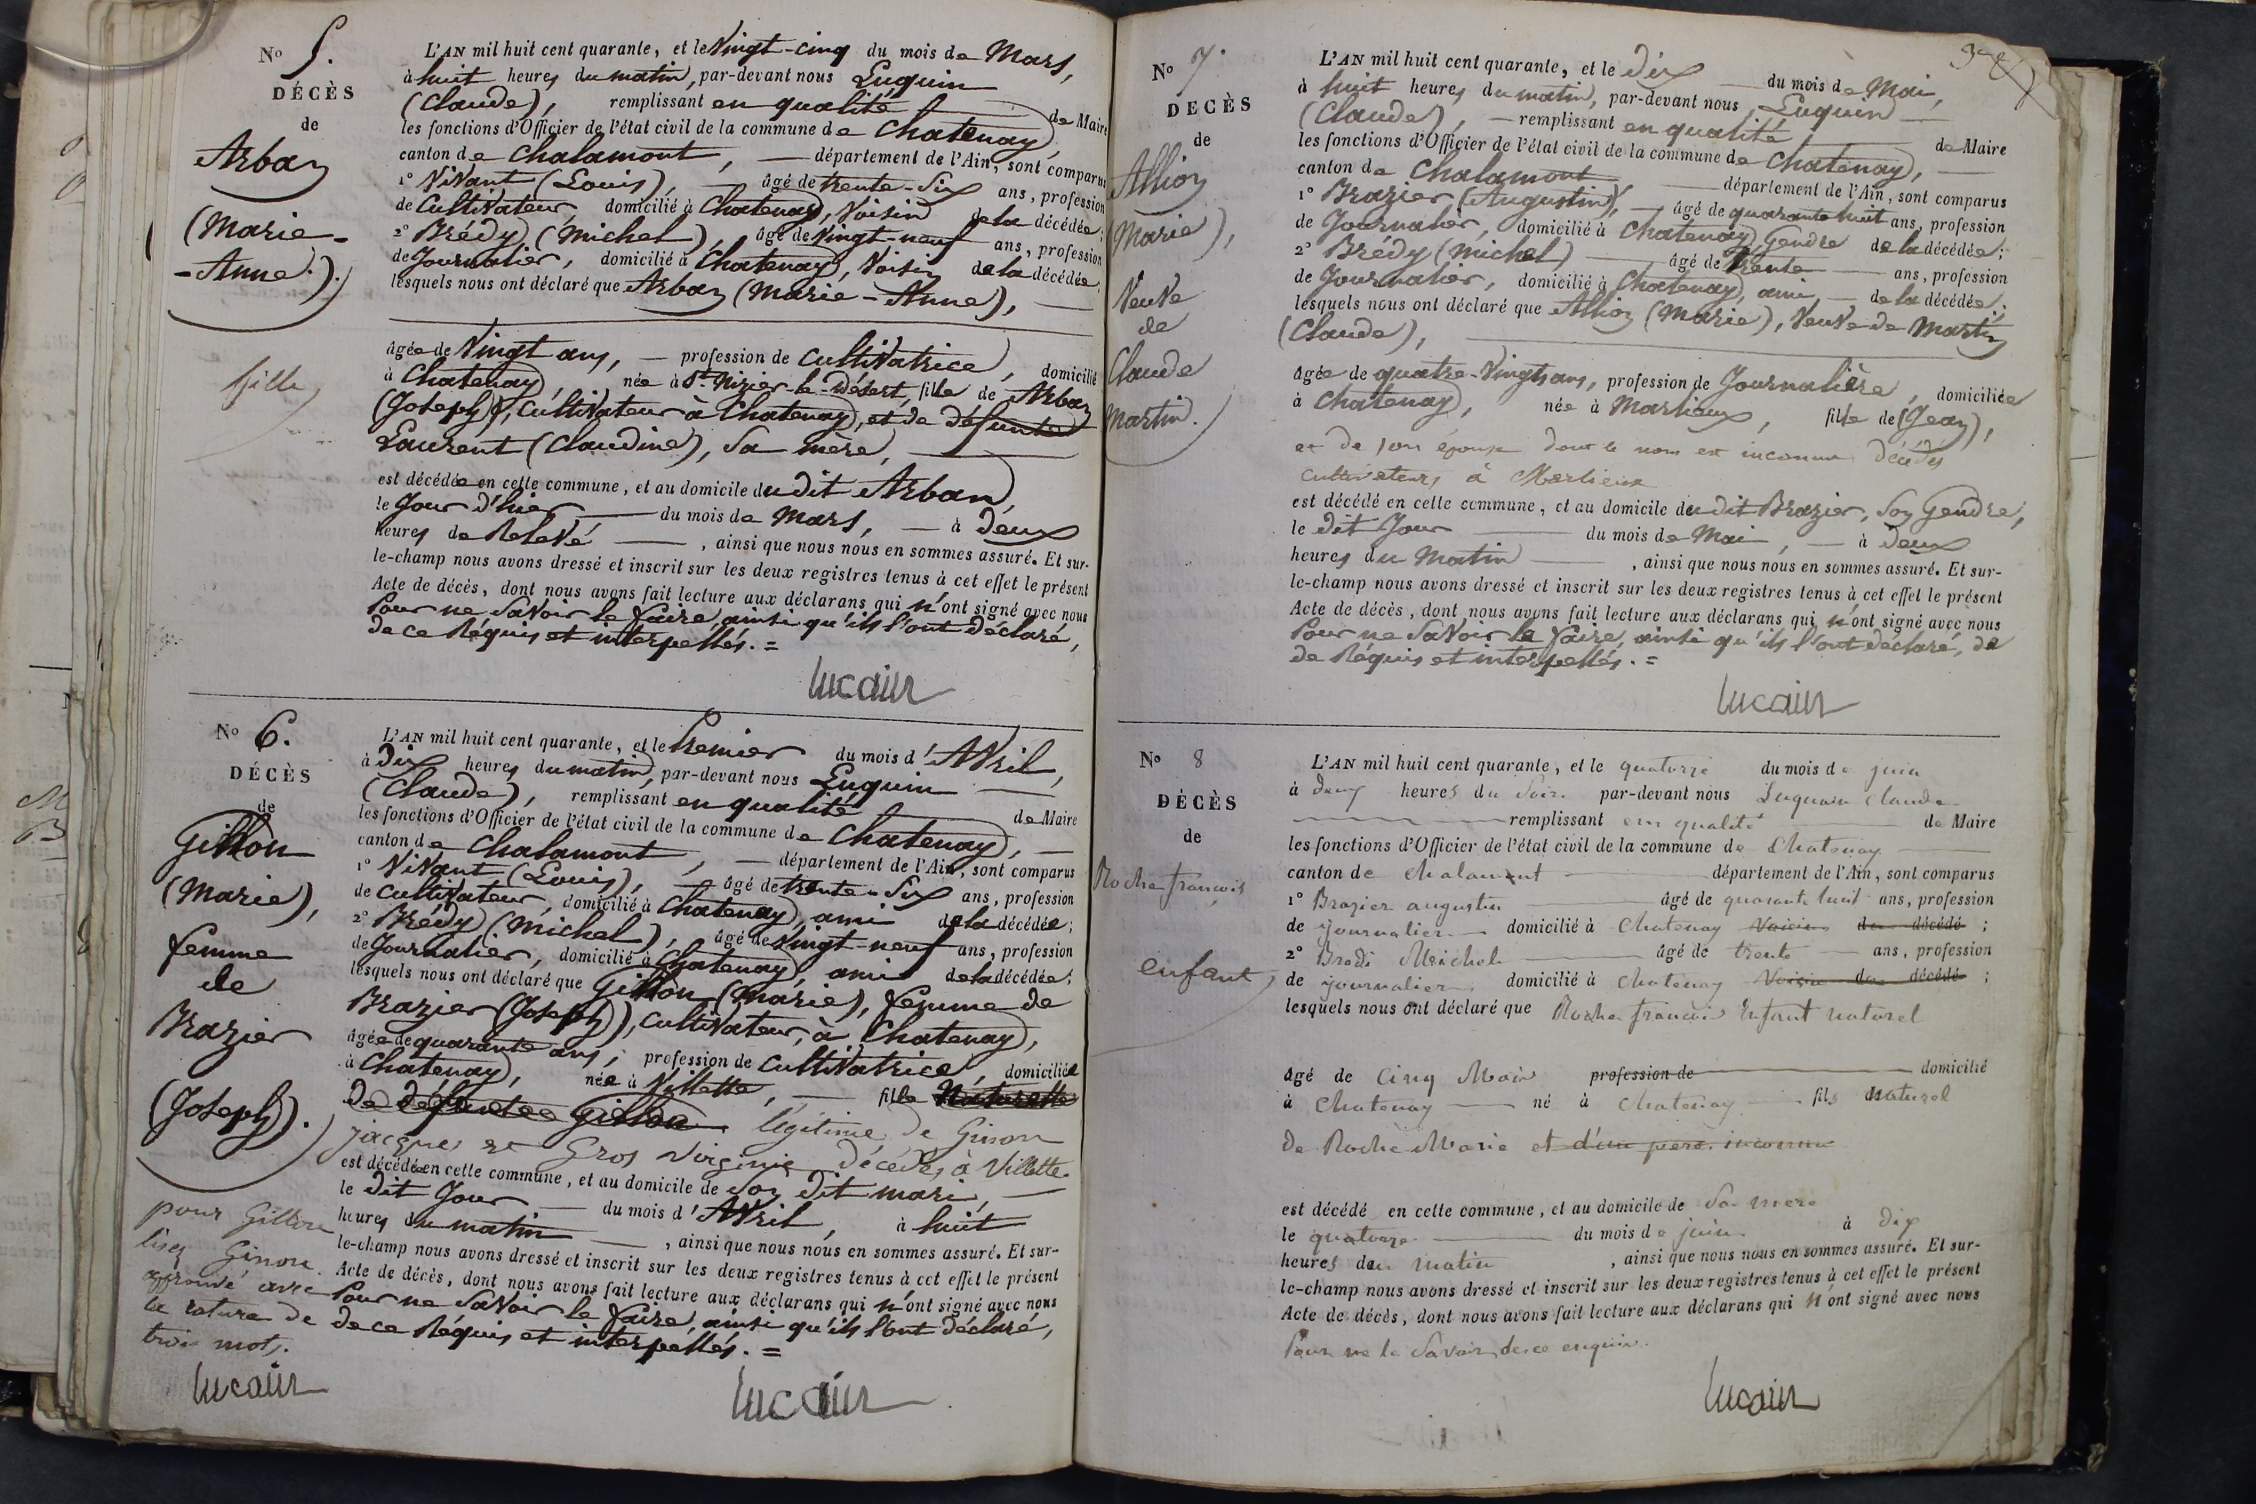 No 5.
DÉCÈS
de
Arban
(Marie-
-Anne).
fille
L'AN mil huit cent quarante, et le Vingt-cinq du mois de Mars,
à huit heures du matin, par-devant nous Luquin
(Claude), remplissant en qualité de Maire
les fonctions d'Officier de l'état civil de la commune de Chatenay,
canton de Chalamont, département de l'Ain, sont comparus
1° Vivant (Louis), âgé de trente-Six ans, profession
de Cultivateur, domicilié à Chatenay, Voisin de la décédée;
2° Brédy (Michel), âgé de Vingt-neuf ans, profession
de Journalier, domicilié à Chatenay, Voisin de la décédée;
lesquels nous ont déclaré que Arban (Marie-Anne),
âgée de Vingt ans, profession de Cultivatrice, domicilié
à Chatenay, née à St. Nizier-le-Désert, fille de Arban
(Joseph), Cultivateur à Chatenay, et de défunte
Laurent (Claudine), Sa mère,
est décédée en cette commune, et au domicile du dit Arban,
le Jour d'hier du mois de Mars, à Deux
heures de Relevé, ainsi que nous nous en sommes assuré. Et sur-
le-champ nous avons dressé et inscrit sur les deux registres tenus à cet effet le présent
Acte de décès, dont nous avons fait lecture aux déclarans qui n'ont signé avec nous
Pour ne Savoir le faire, ainsi qu'ils l'ont Déclaré,
de ce Réquis et interpellés. =
Lucain
No 6.
DÉCÈS
de
Gillon
(Marie),
femme
de
Brazier
(Joseph).
pour Gillon
lisez Ginon
approuvé avec
la rature de
trois mots.
Lucain
L'AN mil huit cent quarante, et le Premier du mois d'Avril,
à Dix heures du matin, par-devant nous Luquin
(Claude), remplissant en qualité de Maire
les fonctions d'Officier de l'état civil de la commune de Chatenay,
canton de Chalamont, département de l'Ain, sont comparus
1° Vivant (Louis), âgé de trente-Six ans, profession
de Cultivateur, domicilié à Chatenay, ami de la décédée;
2° Brédy (Michel), âgé de Vingt-neuf ans, profession
de Journalier, domicilié à Chatenay, ami de la décédée;
lesquels nous ont déclaré que Gillon (Marie), femme de
Brazier (Joseph), Cultivateur, à Chatenay,
âgée de quarante ans, profession de Cultivatrice, domiciliée
à Chatenay, née à Villette, fille Naturelle
De défuntee Gillon légitime de Ginon
jacques et Gros Virginie décédés à Villette
est décédée en cette commune, et au domicile de Son dit mari,
le dit Jour du mois d'Avril, à huit
heures du matin, ainsi que nous nous en sommes assuré. Et sur-
le-champ nous avons dressé et inscrit sur les deux registres tenus à cet effet le présent
Acte de décès, dont nous avons fait lecture aux déclarans qui n'ont signé avec nous
Pour ne Savoir le faire, ainsi qu'ils l'ont Déclaré,
de ce Réquis et interpellés. =
Lucain
No 7.
DECÈS
de
Allion
(Marie),
Veuve
de
Claude
Martin.
L'AN mil huit cent quarante, et le dix du mois de Mai,
à huit heures du matin, par-devant nous Luquin
(Claude), remplissant en qualité de Maire
les fonctions d'Officier de l'état civil de la commune de Chatenay,
canton de Chalamont département de l'Ain, sont comparus
1° Brazier (Augustin), âgé de quarante huit ans, profession
de Journalier, domicilié à Chatenay, Gendre de la décédée;
2° Brédy (Michel) âgé de trente ans, profession
de Journalier, domicilié à Chatenay, ami de la décédée;
lesquels nous ont déclaré que Allion (Marie), Veuve de Martin
(Claude),
âgée de quatre-Vingts ans, profession de Journalière, domiciliée
à Chatenay, née à Marlieux, fille de (Jean),
et de son épouse dont le nom est inconnu décédés
cultivateurs à Marlieux
est décédé en cette commune, et au domicile du dit Brazier, Son Gendre,
le dit Jour du mois de Mai, à deux
heures du Matin, ainsi que nous nous en sommes assuré. Et sur-
le-champ nous avons dressé et inscrit sur les deux registres tenus à cet effet le présent
Acte de décès, dont nous avons fait lecture aux déclarans qui n'ont signé avec nous
Pour ne Savoir le faire, ainsi qu'ils l'ont déclaré, de
de Réquis et interpellés. =
Lucain
No 8
DÉCÈS
de
Roche francois
enfant
L'AN mil huit cent quarante, et le quatorze du mois de juin
à deux heures du Soir par-devant nous Luquain Claude
remplissant en qualité de Maire
les fonctions d'Officier de l'état civil de la commune de Chatenay
canton de chalamont département de l'Ain, sont comparus
1° Brazier augustin âgé de quarante huit ans, profession
de journalier domicilié à Chatenay Voisin du décédé;
2° Bredi Meichel âgé de trente ans, profession
de journalier domicilié à Chatenay Voisin du décédé;
lesquels nous ont déclaré que Roche francois Enfant naturel
âgé de Cinq Mois profession de domicilié
à Chatenay né à Chatenay fils Naturel
De Roche Marie et d'un pere inconnu
est décédé en cette commune, et au domicile de Sa mere
le quatorze du mois de juin à dix
heures du matin, ainsi que nous nous en sommes assuré. Et sur-
le-champ nous avons dressé et inscrit sur les deux registres tenus à cet effet le présent
Acte de décès, dont nous avons fait lecture aux déclarans qui n'ont signé avec nous
Pour ne le Savoir de ce enquis.
Lucain